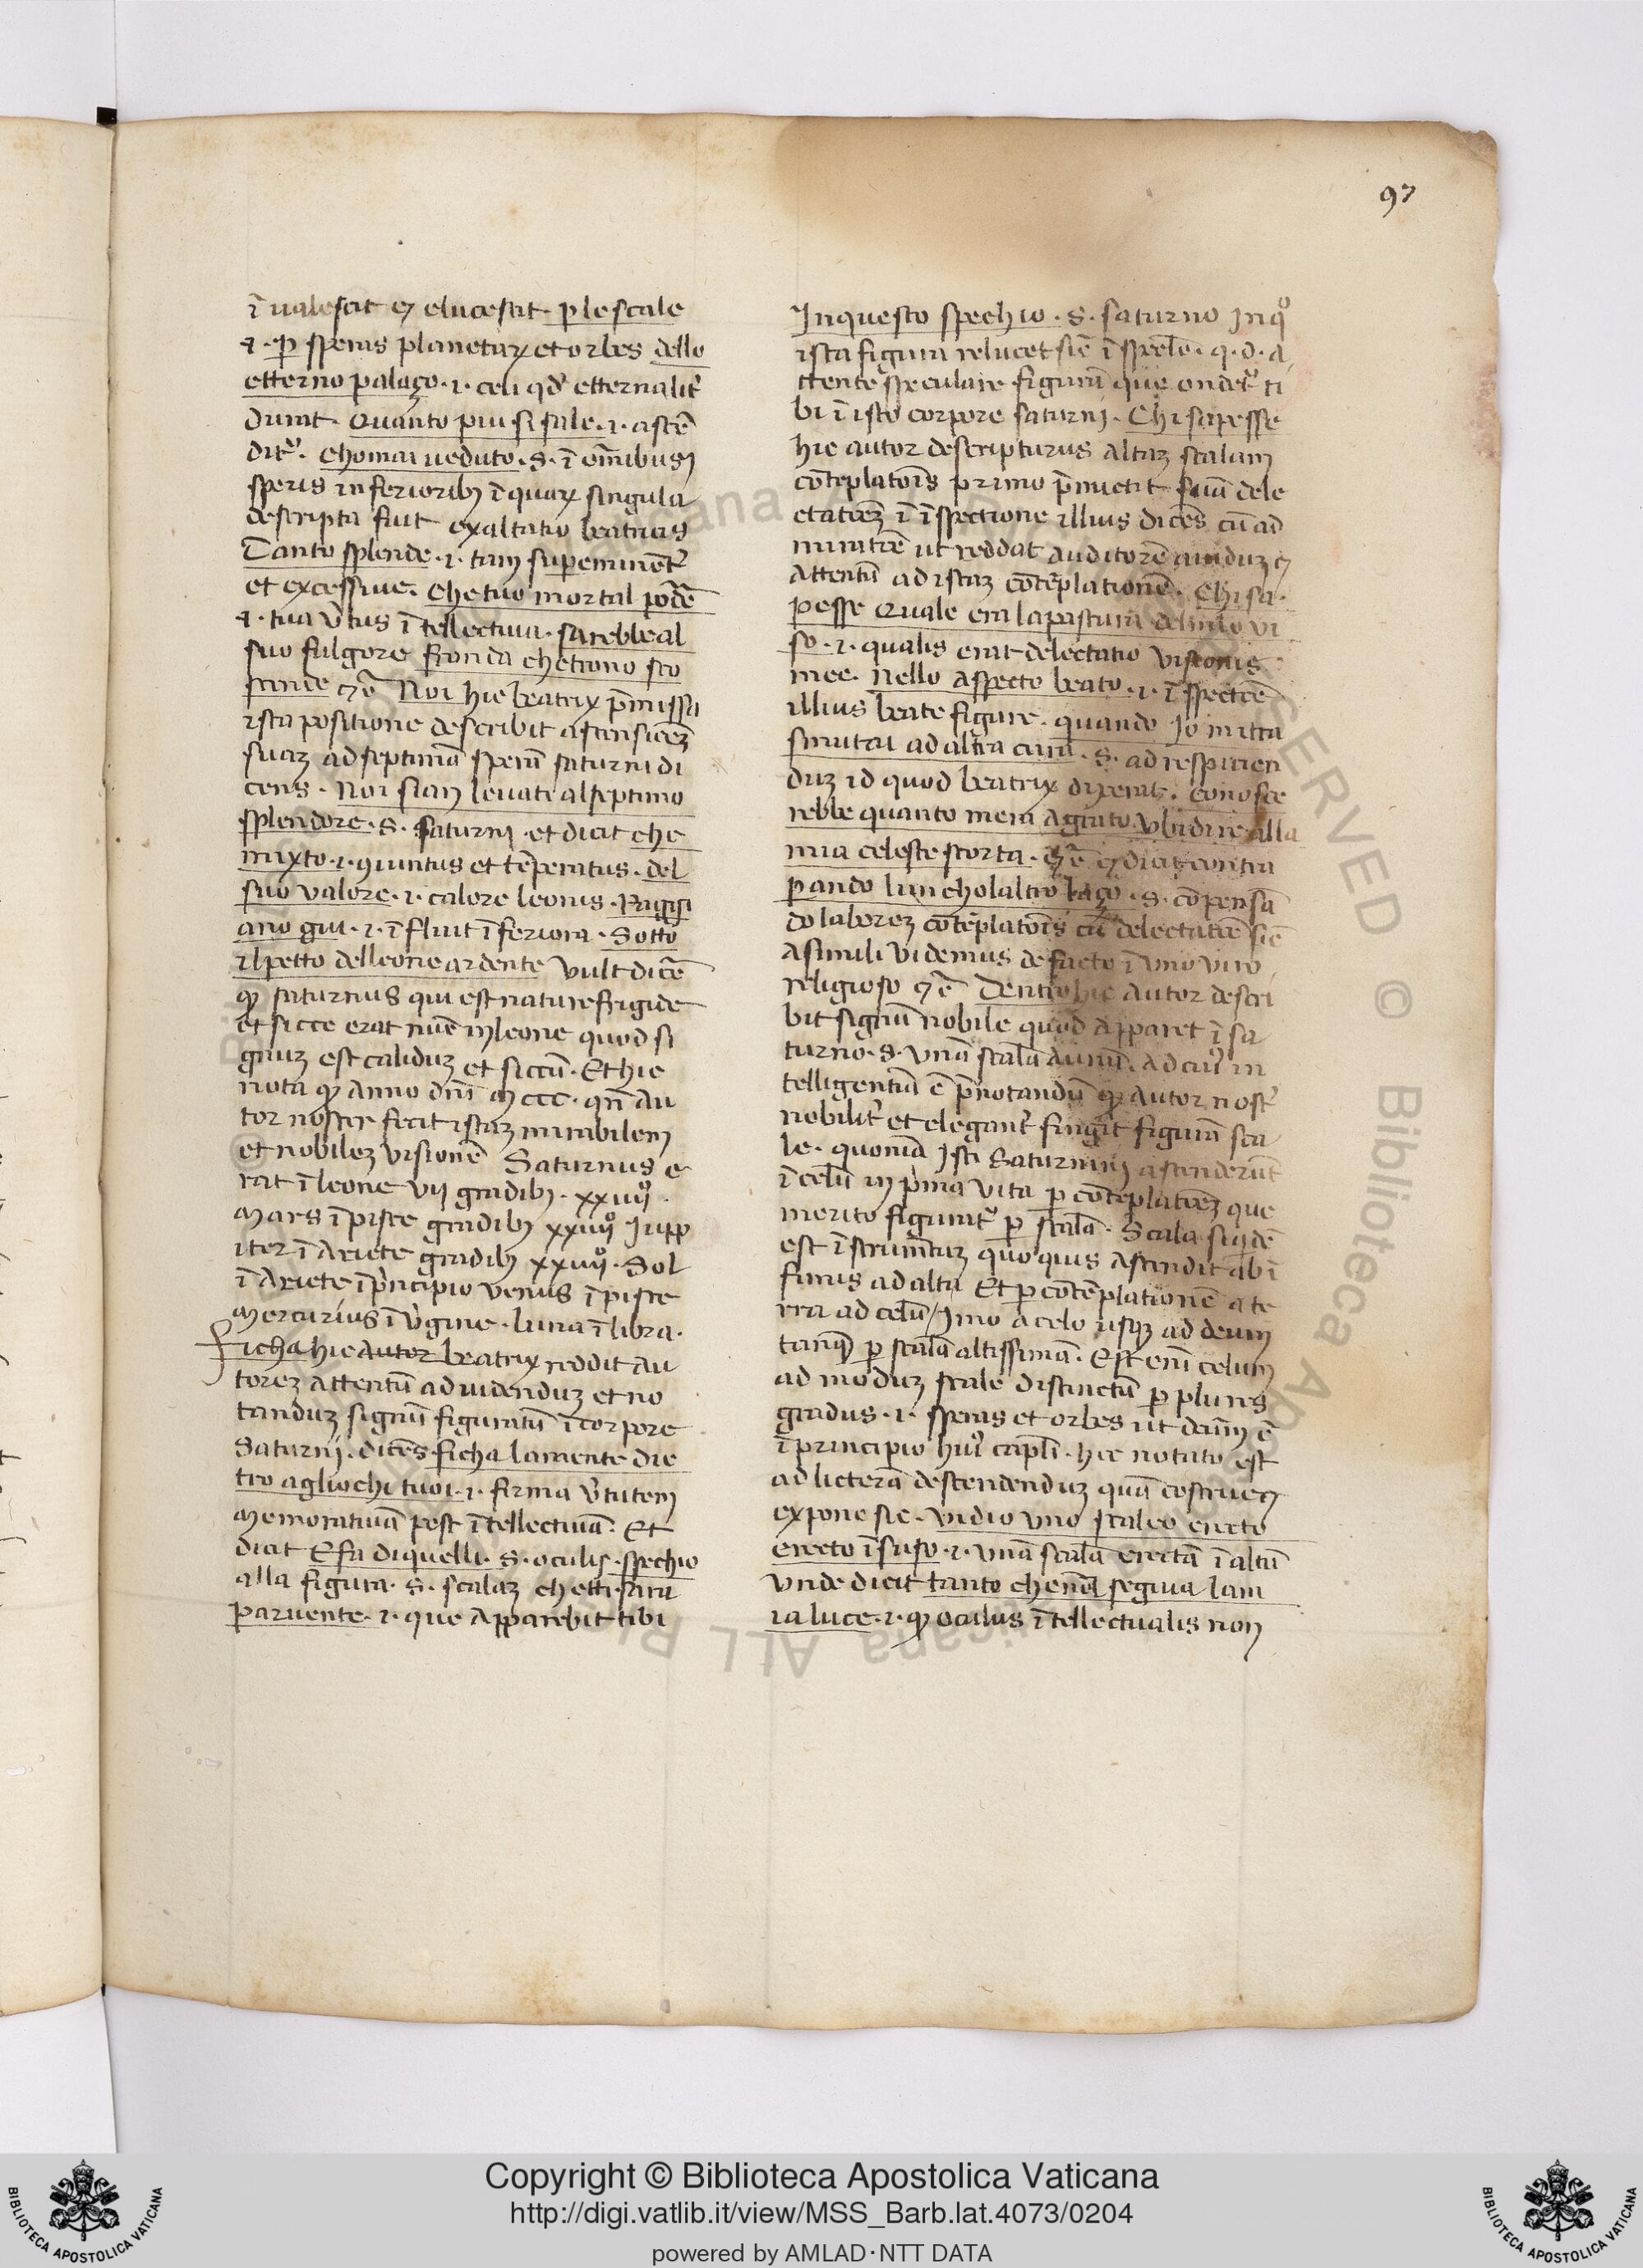 97
ī ualescit ⁊ elucescit. ꝑ le scale
.i. ꝑ speras planetaꝝ et orbes dello
etterno palaço .i. celi qd' etternalit'
durat. Quanto piu si sale .i. ascē
dit'. Chomai ueduto .s. ī oīnibus
speris inferioribꝫ ī quaꝝ singula
descripta fuit exaltatio beatricis
Tanto splende .i. tam supeminēt'
et excessiue. che tuo mortal podē
.i. tua v'tus ītellectiua. sarebbe al
suo fulgore fronda che trono sco
scende ⁊c̄ Noi hic beatrix p̄missa
ista positione describit ascensioēꝫ
suaꝫ ad septimā sperā saturni di
cens. Noi sian leuati al septimo
splendore .s. saturni. et dicit che
mixto .i. giuntus et tēperatus. del
suo valore .i. calore leonis. Raggi
ano giu .i. īfluit īferiora. Sotto
il petto del leone ardente vult dicē
ꝙ saturnus qui est nature frigide
et sicce erat nūc in leone quod si
gnuꝫ est caliduꝫ et siccū. Et hic
nota ꝙ anno dn̄i mccc. qn̄ au
tor noster fecit istaꝫ mirabilem
et nobileꝫ visionē Saturnus e
rat ī leone vij gradibꝫ. xxiiijº.
Mars ī pisce gradibꝫ xxiiijº Jupp
iter ī Ariete gradibꝫ xxiiijº. Sol
ī Ariete ī p'ncipio venus ī pisce
Mercurius ī v'gine. luna ī libra.
Ficha hic autor beatrix reddit au
toreꝫ attentū ad uidenduꝫ et no
tanduꝫ signū figuratū ī corpore
Saturnj. dicēs ficha la mente die
tro agliochi tuoi .i. firma v'tutem
memoratiuā post ītellectiuā. Et
dicit E fa di quelli .s. oculis. spechio
alla figura .s. scalaꝫ che tti sara
paruente .i. que apparebit tibi
In questo spechio .s. saturno in qº
ista figura relucet sic̄ ī spec̄lo. q.d. a
ttente speculare figurā que ondet' ti
bi ī isto corpore saturnj. Chi sapesse
hic autor descripturus altaꝫ scalam
cōtēplatoīs primo p̄mictit suā dele
ctatioēꝫ ī īspectione illius dicēs cū ad
miratiōē ut reddat auditorē auiduꝫ ⁊
attentū ad istaꝫ cōtēplationē. Chi sa
pesse Quale era la pastura del mio vi
so .i. qualis erat delectatio visionis
mee. Nello aspecto beato .i. īspectiōē
illius beate figure. quando Io mi tra
smutai ad altra cura .s. ad respicien
duꝫ id quod beatrix dixerat. Conosce
rebbe quanto mera agrato vbidire alla
mia celeste scorta. ⁊c̄ ⁊ dicit contra
pando lun cholaltro laço .s. cōpensā
do laboreꝫ cōtēplatoīs cū delectatiōē sic̄
a simili videmus de facto ī vno viro
religioso ⁊c̄ Dentro hic autor descri
bit signū nobile quod apparet ī sa
turno .s. vnā scalā aureā. ad cui' in
telligentiā ē p̄notandū ꝙ autor nost'
nobilit' et elegant' fingit figurā sca
le. quoniā isti Saturnini ascenderūt
ī celū in p'ma vita ꝑ cōtēplatioēꝫ que
merito figurat' ꝑ scalā. Scala siq̄dē
est īstrumētuꝫ quo quis ascendit ab ī
fimis ad alta Et ꝑ cōtēplationē a te
rra ad celū / Imo a celo usqꝫ ad deum
tanqꝫ ꝑ scalā altissimā. Est enī celum
ad moduꝫ scale distinctū ꝑ plures
gradus .i. speras et orbes ut dcm̄ ē
ī principio hui' capli. hic notato est
ad licterā descendenduꝫ quā costrue ⁊
expone sic. Vidio vno scaleo erecto
erecto ī suso .i. vnā scalā erectā ī altū
vnde dicit tanto che nol seguia la m
ia luce .i. ꝙ oculus ītellectualis non
Copyright © Biblioteca Apostolica Vaticana
http://digi.vatlib.it/view/MSS_Barb.lat.4073/0204
powered by AMLAD·NTT DATA
BIBLIOTECA APOSTOLICA VATICANA
BIBLIOTECA APOSTOLICA VATICANA